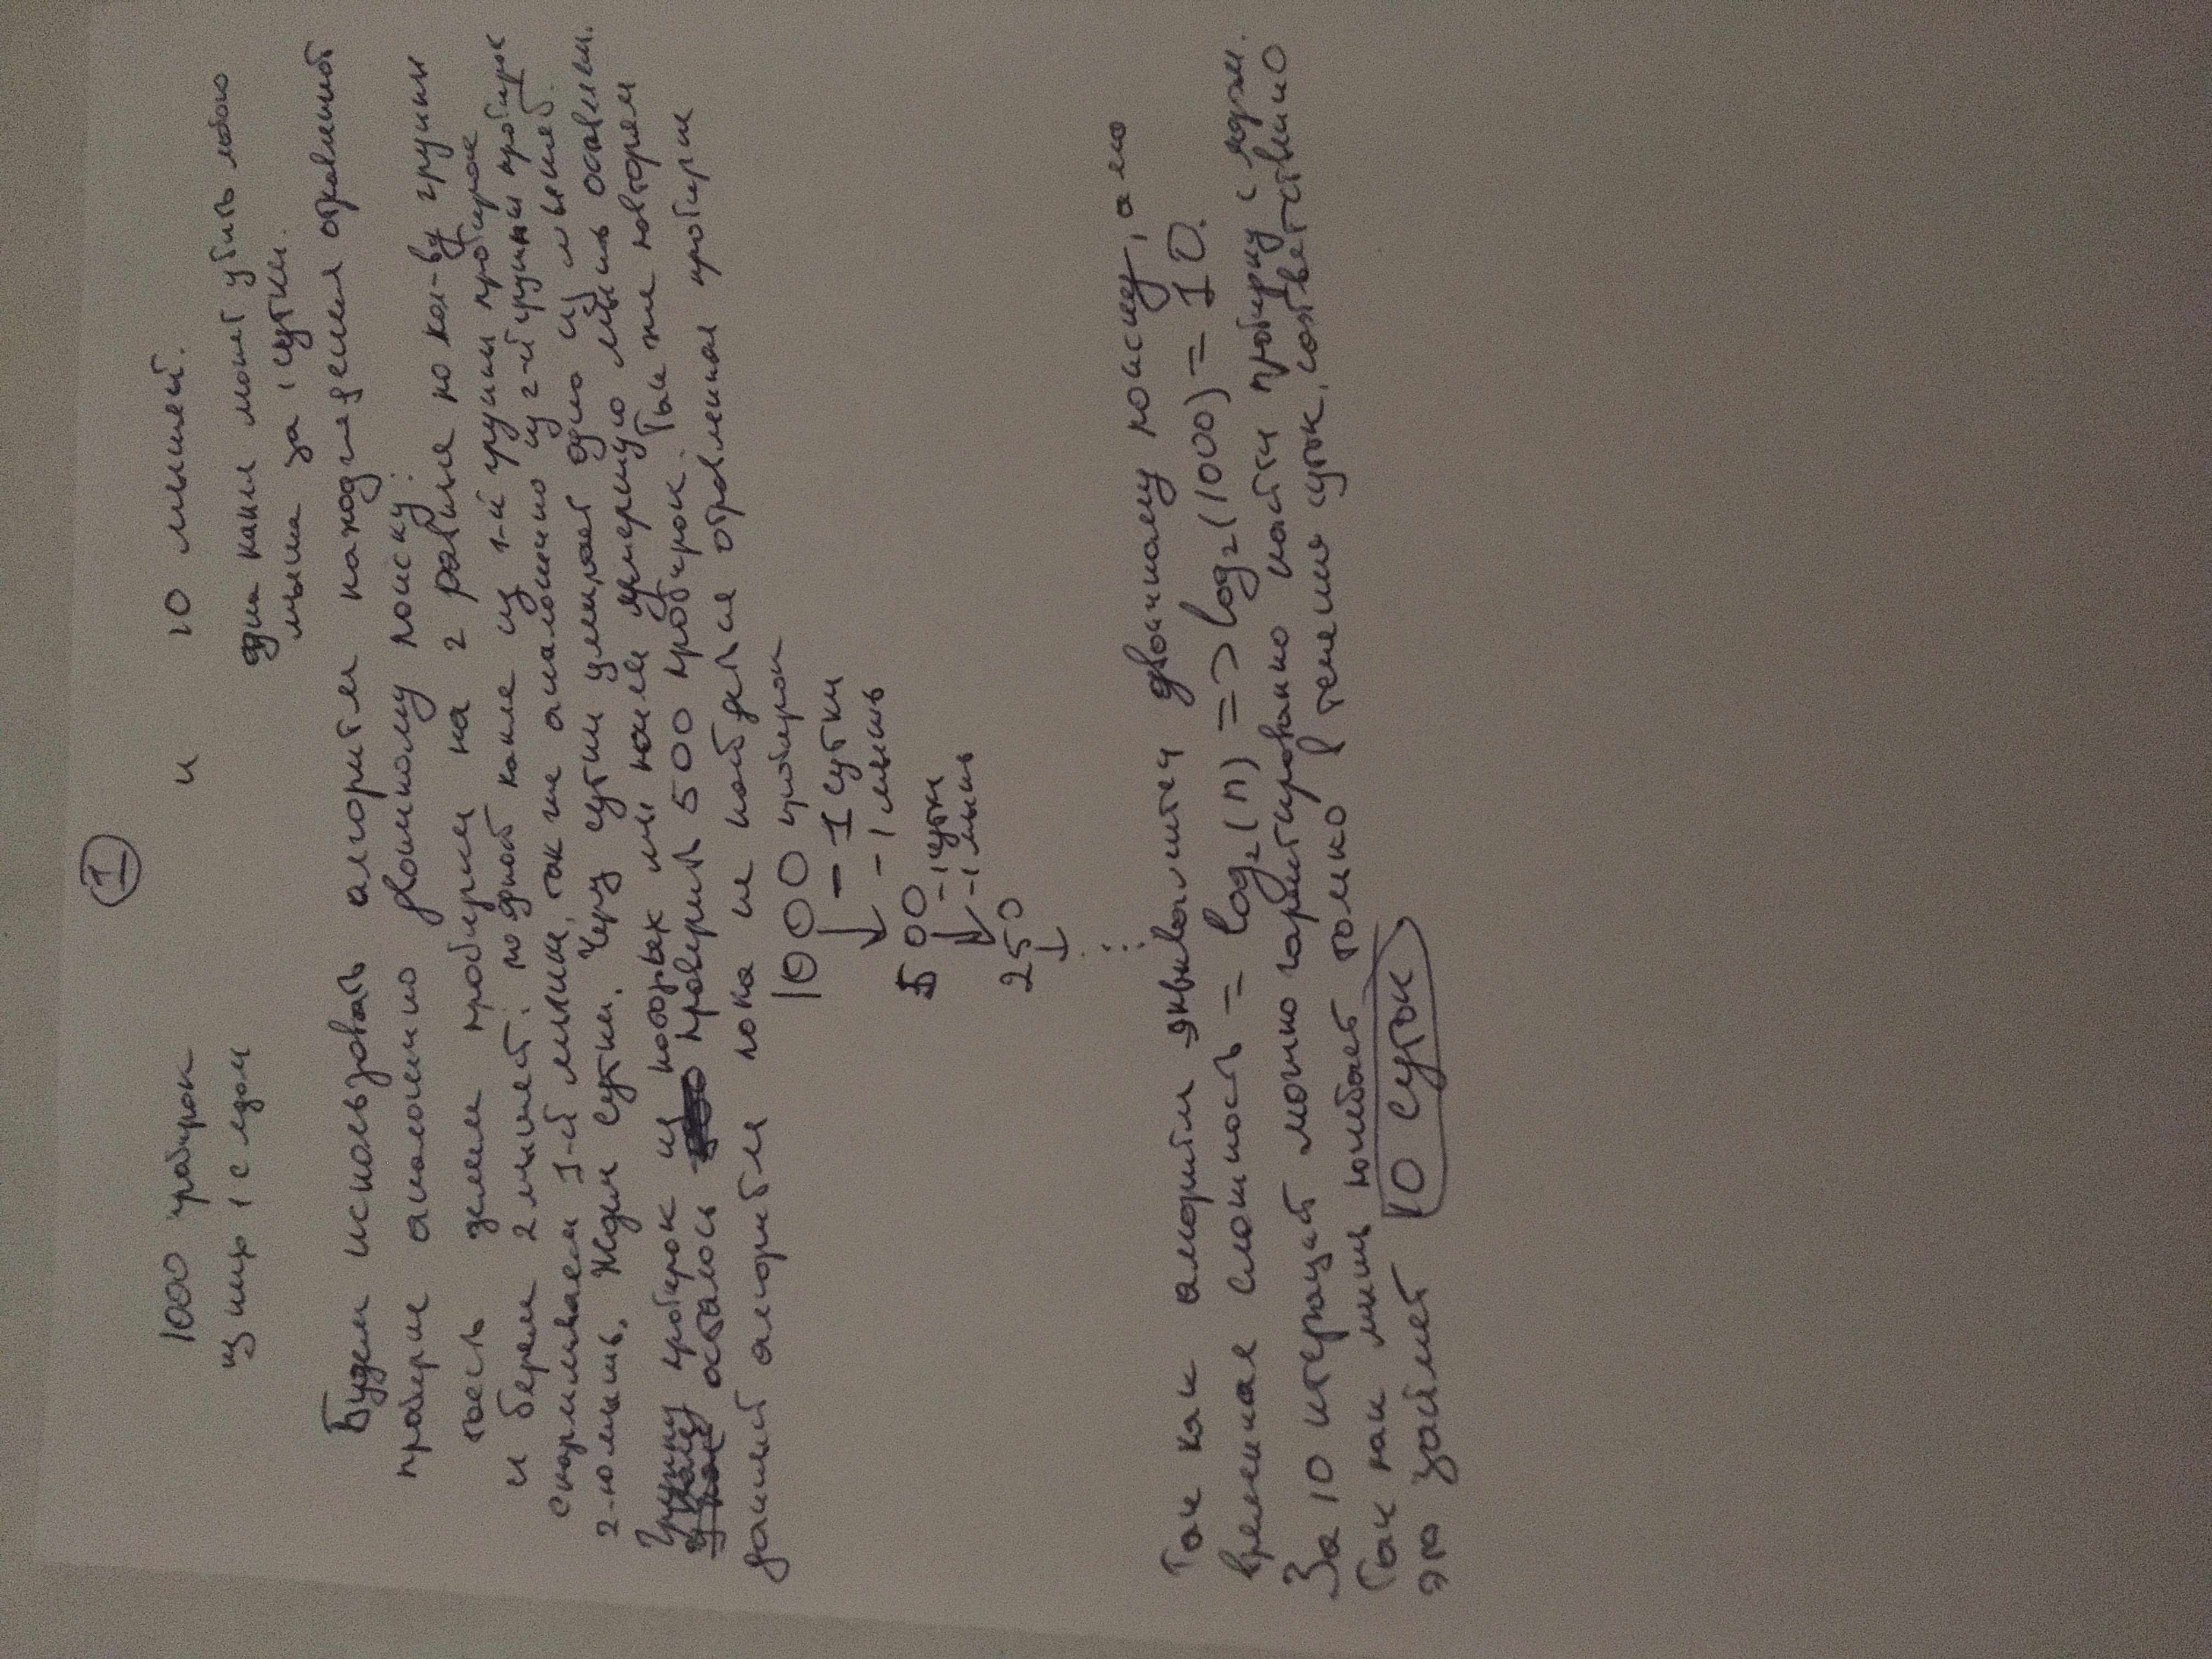 1
1000 пробирок и 10 мышей.
из них 1 с ядом
одна капля может убить любого
мыша за 1 сутки.
Будем использовать алгоритм нахождения отравленной
пробирке аналогично двоичному поиску:
тоесть делем пробирки на 2 равные по кол-ву группы
и берем 2 мышей: по одной капле из 1-й группы пробирок
скармливаем 1-й мышке, так же аналогично из 2-й группы пробирок
2-ю мышь. Ждем сутки. Через сутки умирает одна из мышей.
Группу пробирок из которых мы поили умершую мышь оставляем.
осталось проверить 500 пробирок. Так же повторяем
данный алгоритм пока не найдеться отравленная пробирка
1000 пробирок
- 1 сутки
- 1 мышь
500
- 1 сутки
- 1 мышь
250
Так как алгоритм эквивалентен двоичному поиску, а его
временная сложность = log₂(n) => log₂(1000) = 10.
За 10 итераций можно гарантированно найти пробирку с ядом.
Так как мышь погибает только в течение суток, соответственно
это займет 10 суток